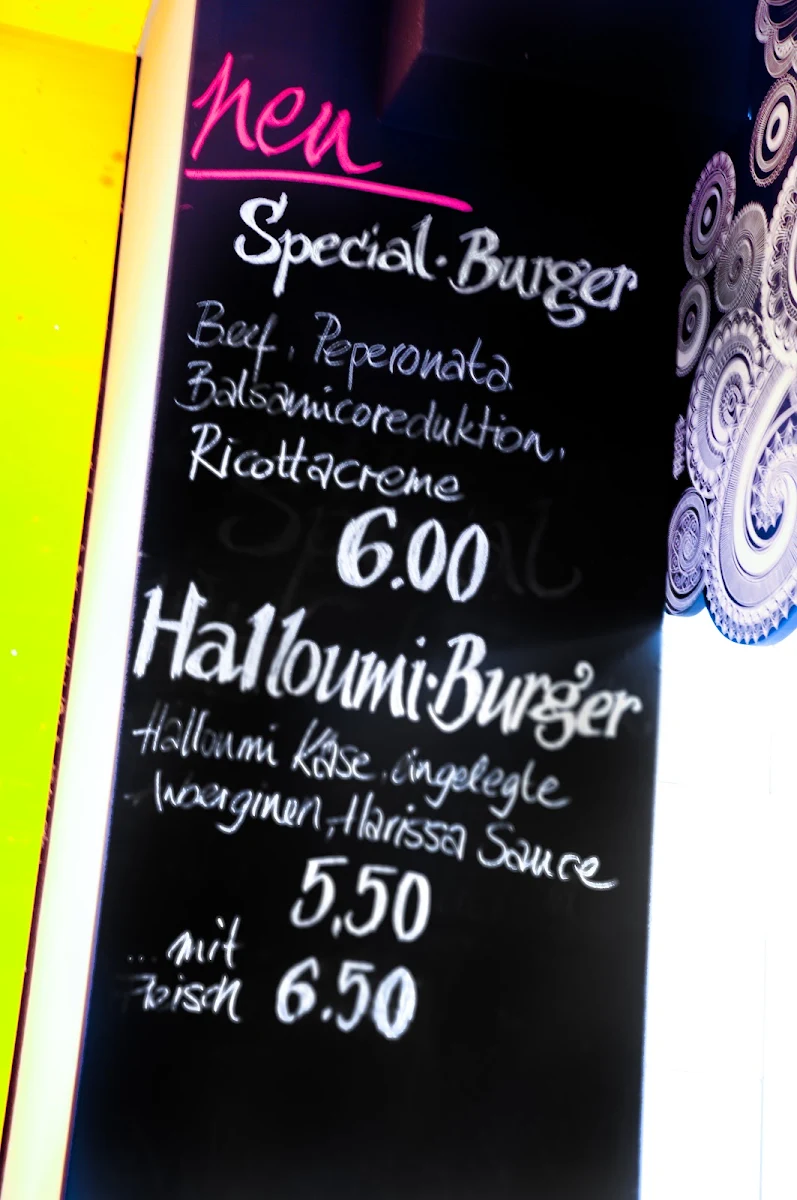 neu
Special·Burger
Beef, Peperonata
Balsamicoreduktion,
Ricottacreme
6.00
Halloumi·Burger
Halloumi Käse, eingelegte
Auberginen, Harissa Sauce
5,50
... mit
Fleisch 6.50